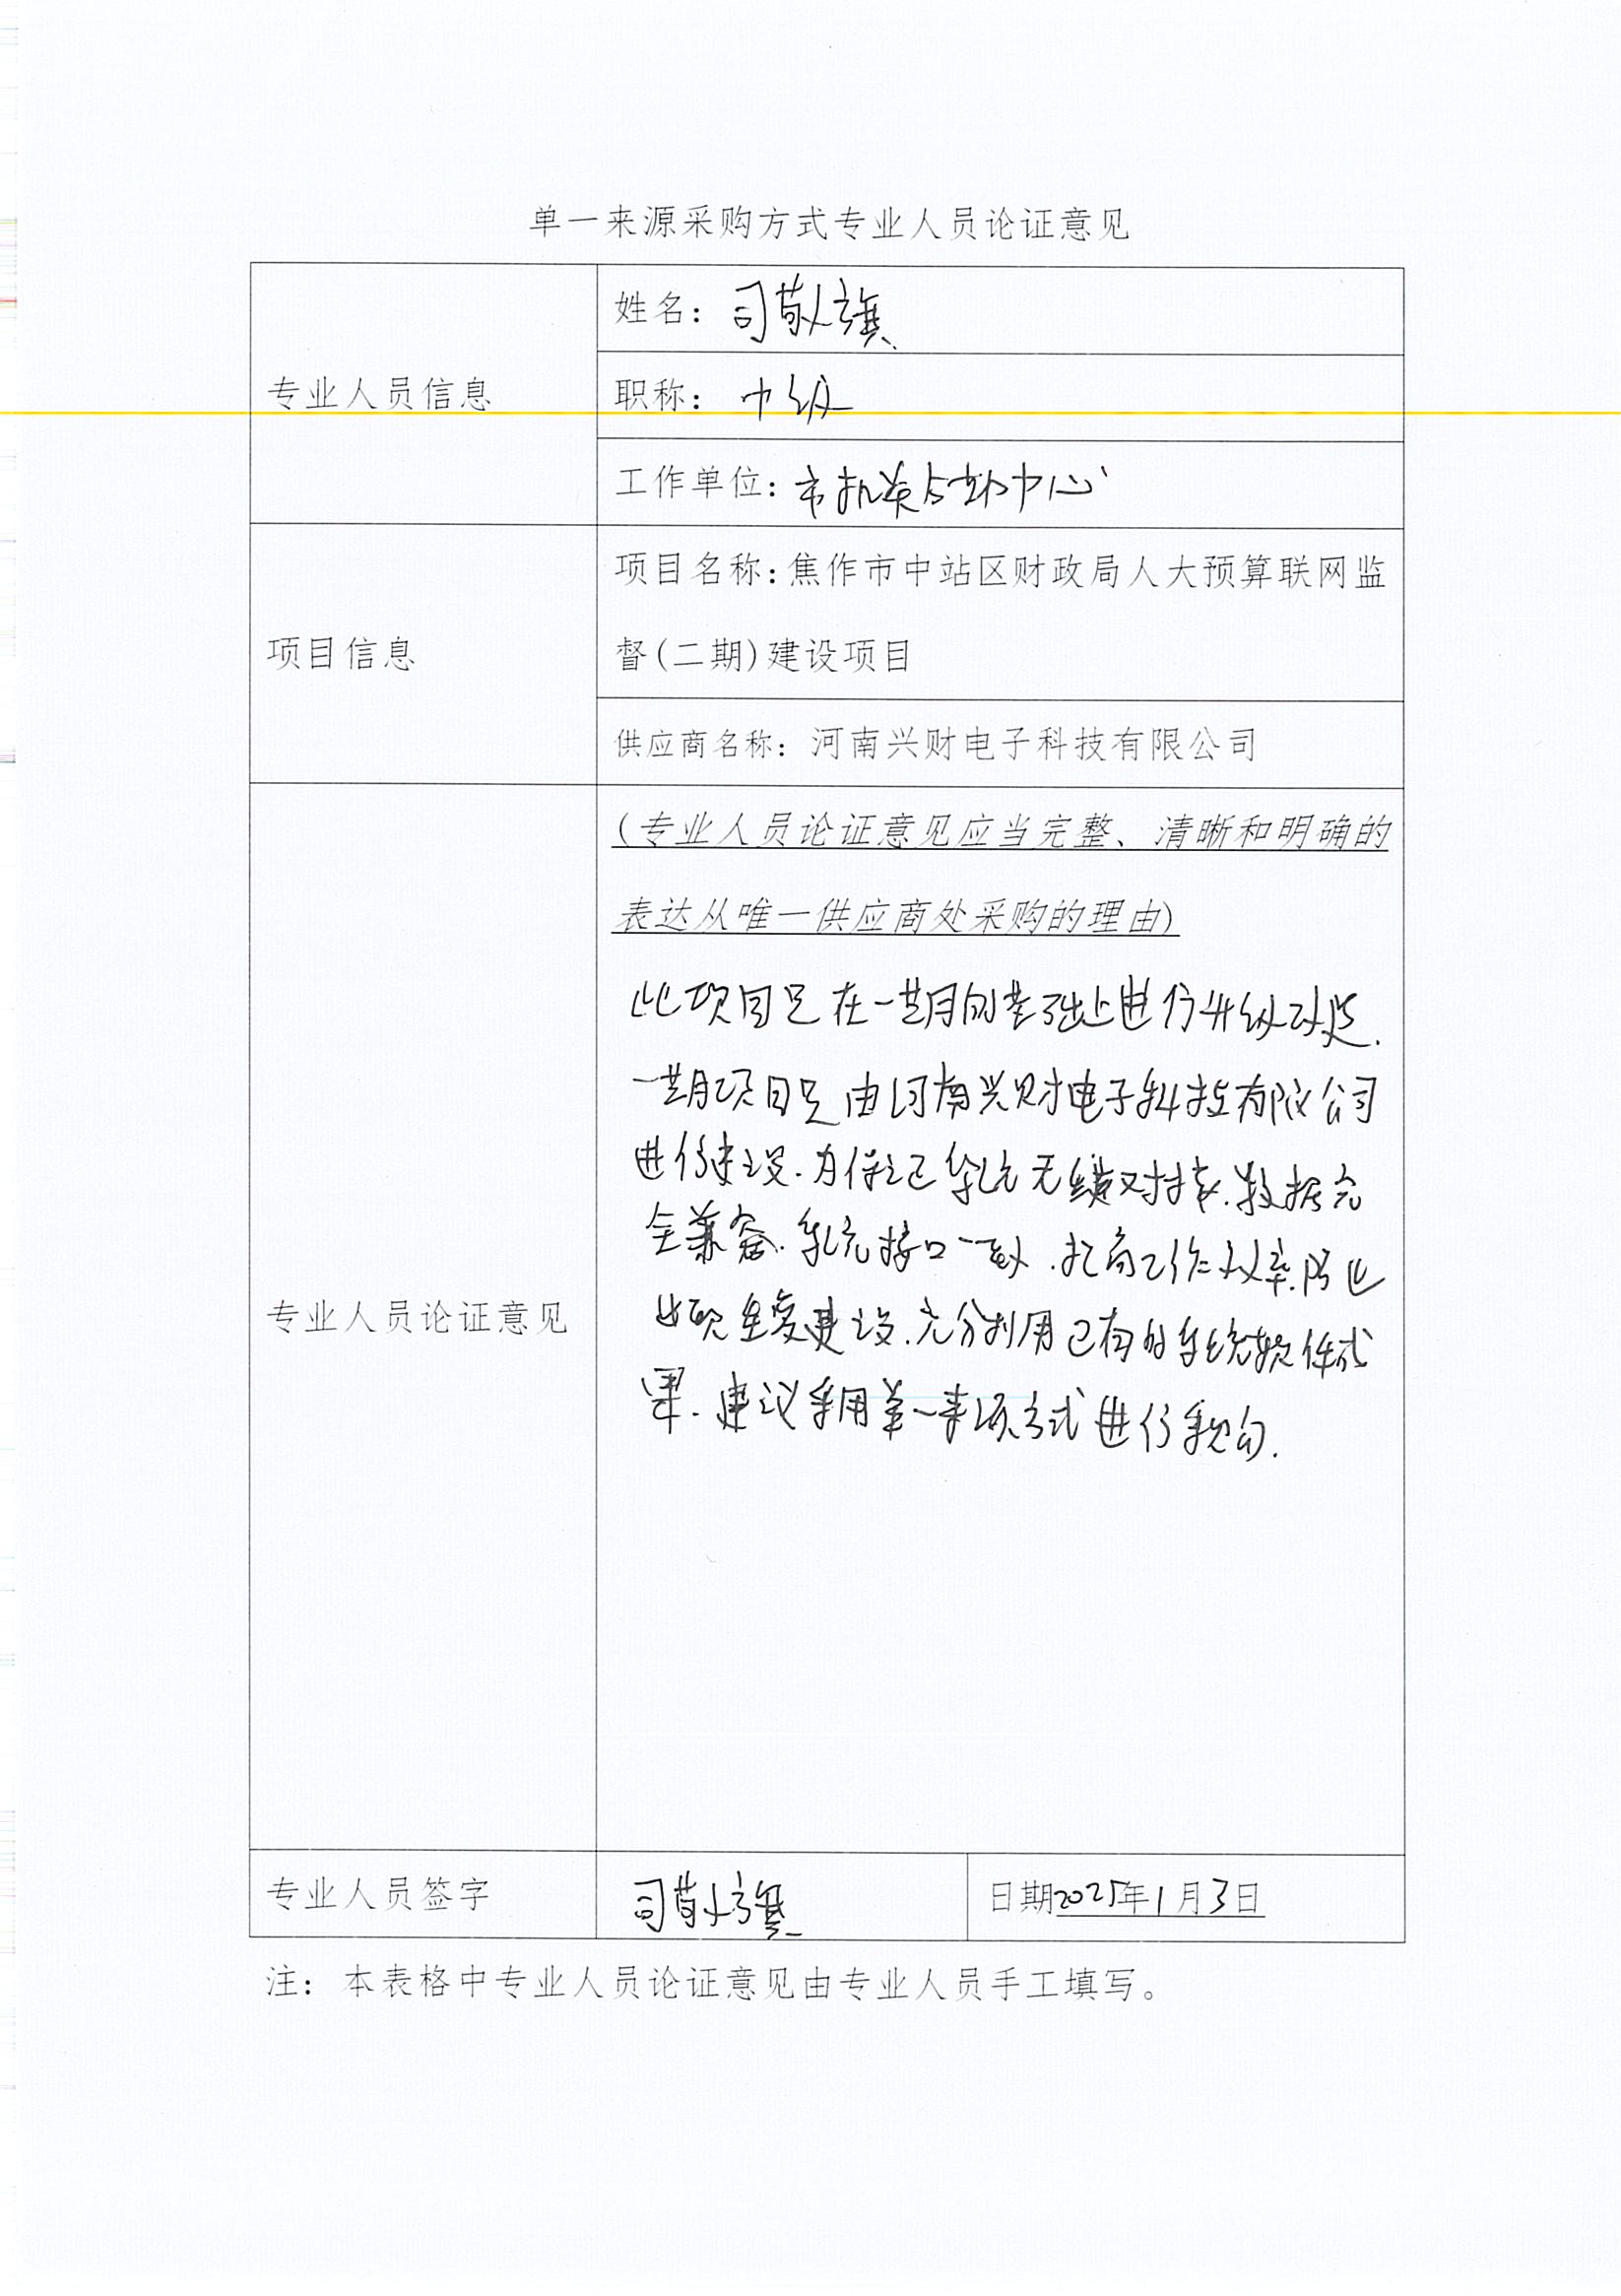 单一来源采购方式专业人员论证意见
专业人员信息
姓名：司敬旗
职称：中级
工作单位：市投资与中心
项目信息
项目名称：焦作市中站区财政局人大预算联网监
督(二期)建设项目
供应商名称：河南兴财电子科技有限公司
专业人员论证意见
(专业人员论证意见应当完整、清晰和明确的
表达从唯一供应商处采购的理由)
此项目是在一期的基础上进行升级改造.
一期项目是由河南兴财电子科技有限公司
进行建设.为保证系统无缝对接.数据完
全兼容.系统接口一致.提高工作效率.防止
出现重复建设.充分利用已有的系统软件成
果.建议采用单一来源方式进行采购.
专业人员签字
司敬旗
日期2025年1月3日
注：本表格中专业人员论证意见由专业人员手工填写。